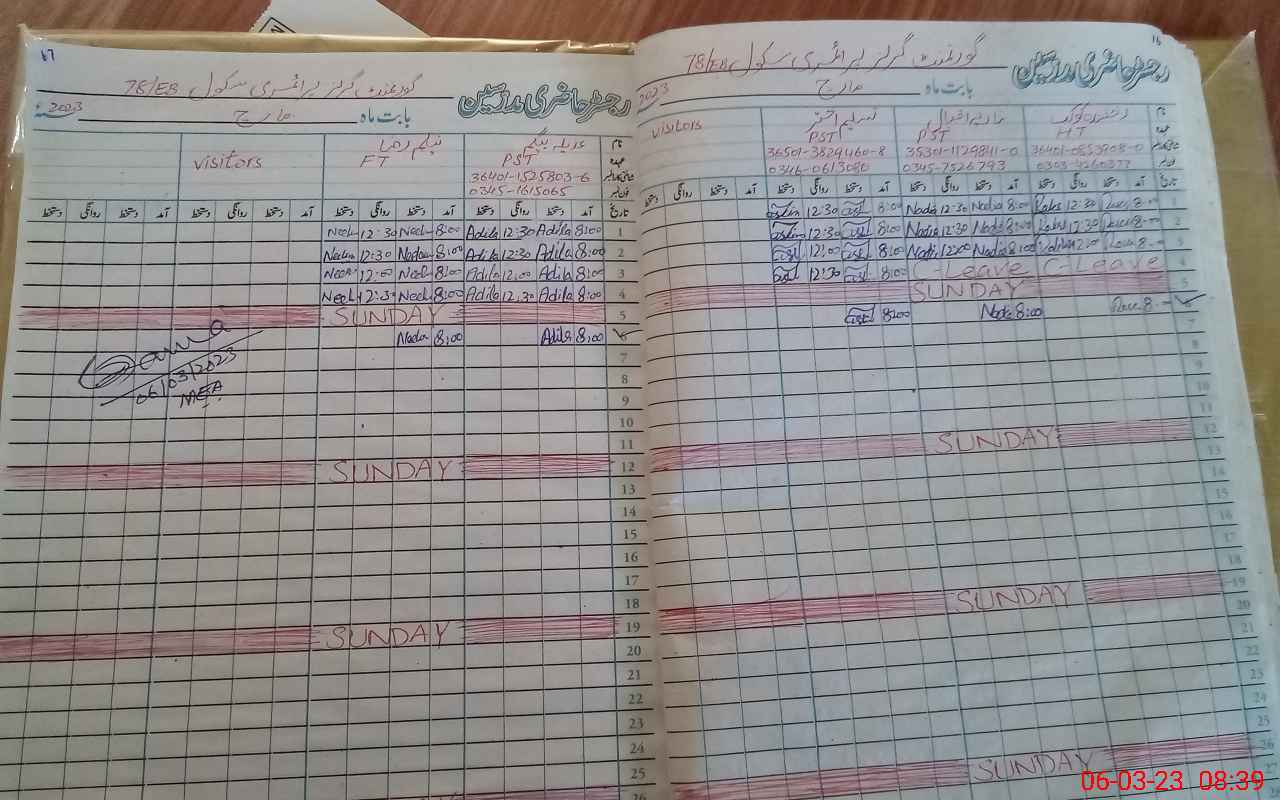 16
رجسٹر حاضری مدرسین گورنمنٹ گرلز پرائمری سکول 78/EB
بابت ماہ مارچ 2023
نام نسیم اختر
visitors
HT PST PST
36401-0853908-0 35301-1179841-0 36501-3829460-8
0345-7526793 0346-0613080
تاریخ آمد دستخط روانگی دستخط آمد دستخط روانگی دستخط آمد دستخط روانگی دستخط آمد دستخط روانگی دستخط
1 8:00 12:30 Nadia 8:00 Nadia 12:30 8:00 12:30
2 8:00 12:30 Nadia 8:00 Nadia 12:30 8:00 12:30
3 8:00 Nadia 8:00 Nadia 12:00 8:00 12:00
4 C-Leave C-Leave 8:00 12:30
5 SUNDAY
8:00 Nadia 8:00 8:00
7
8
9
10
11
12 SUNDAY
13
14
15
16
17
18
19 SUNDAY
20
21
22
23
24
25
26 SUNDAY
27
17
رجسٹر حاضری مدرسین گورنمنٹ گرلز پرائمری سکول 78/EB
بابت ماہ مارچ 2023
نام عدیلہ بیگم
visitors
PST FT
36401-1525803-6
0345-1615065
تاریخ آمد دستخط روانگی دستخط آمد دستخط روانگی دستخط آمد دستخط روانگی دستخط آمد دستخط روانگی دستخط
1 8:00 Adila 12:30 Adila 8:00 Neel 12:30 Neel
2 8:00 Adila 12:30 Adila 8:00 12:30
3 8:00 Adila 12:00 Adila 8:00 Neel 12:00 Neel
4 8:00 Adila 12:30 Adila 8:00 Neel 12:30 Neel
5 SUNDAY
6 8:00 Adila 8:00
7
8
9
10
11
12 SUNDAY
13
14
15
16
17
18
19 SUNDAY
20
21
22
23
24
25
26
06/03/2023
MEA
06-03-23 08:39